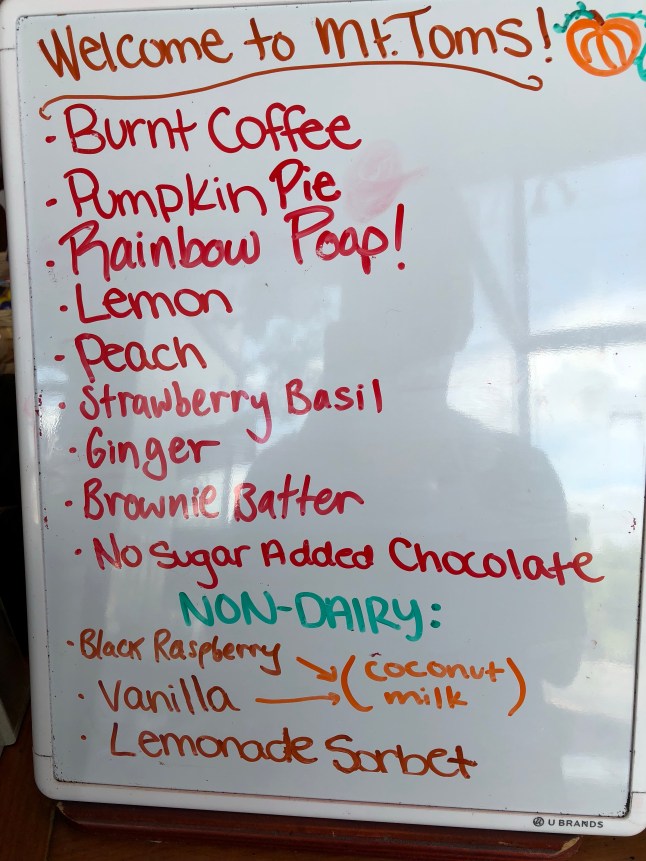 Welcome to Mt. Toms!
· Burnt Coffee
· Pumpkin Pie
· Rainbow Poap!
· Lemon
· Peach
· Strawberry Basil
· Ginger
· Brownie Batter
· No Sugar Added Chocolate
NON-DAIRY:
· Black Raspberry
· Vanilla → (coconut milk)
· Lemonade Sorbet
U BRANDS